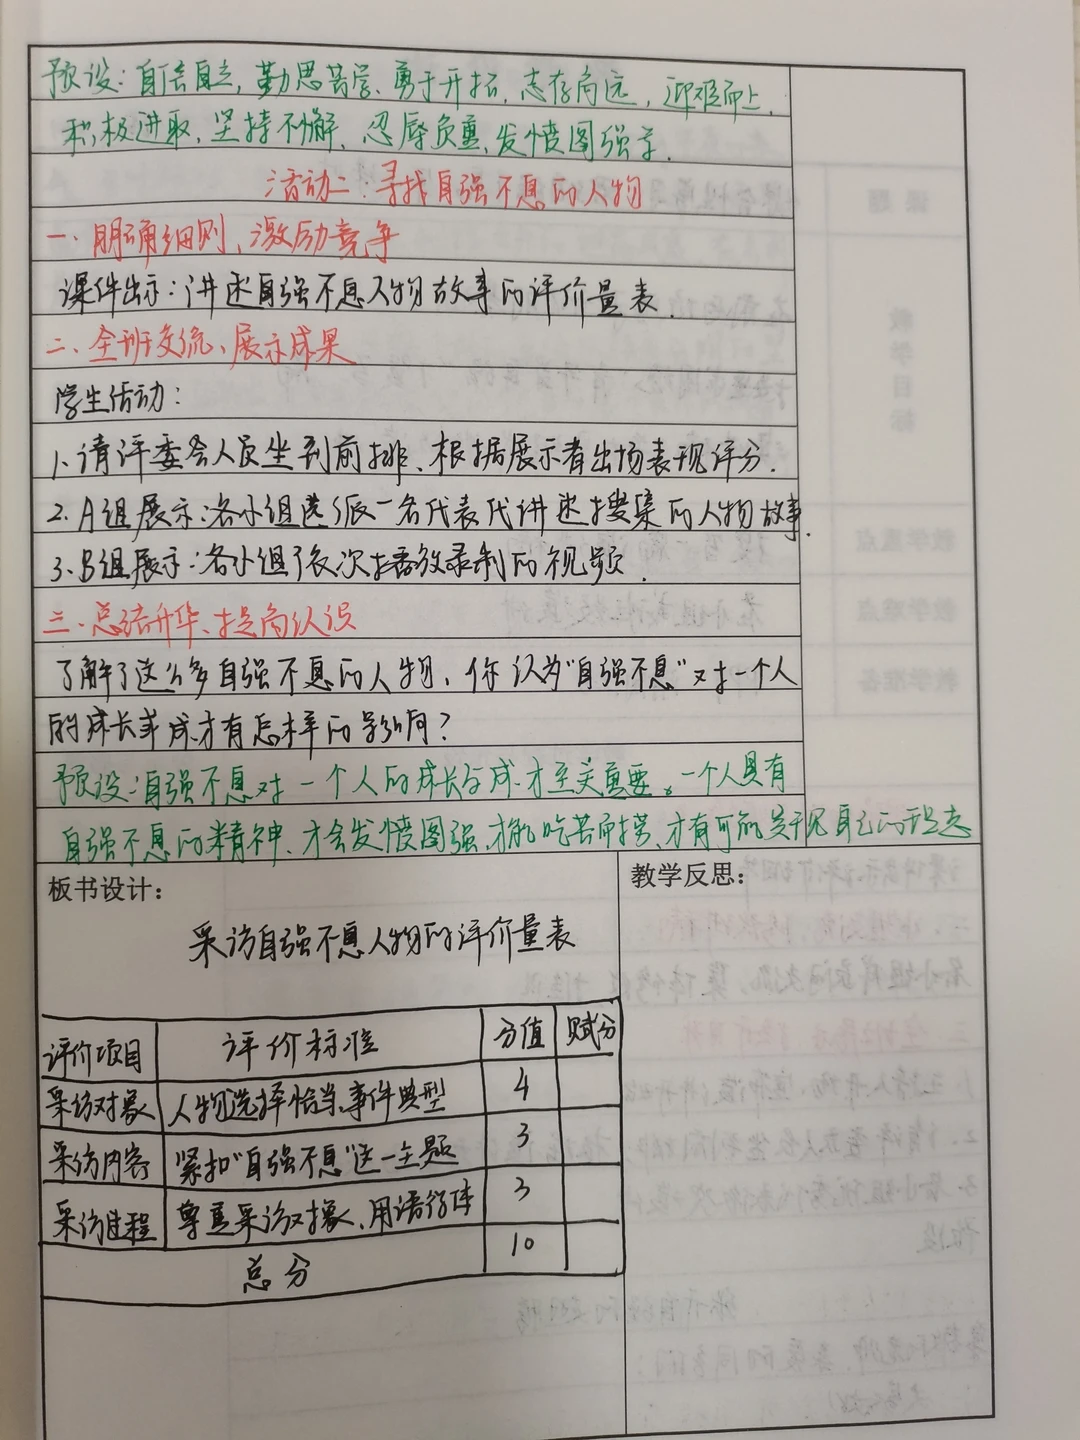 预设：自信自立，勤思苦学、勇于开拓，志存高远，迎难而上，
积极进取，坚持不懈、忍辱负重，发愤图强等．
活动二：寻找自强不息的人物
一、明确细则，激励竞争
课件出示：讲述自强不息人物故事的评价量表．
二、全班交流、展示成果
学生活动：
1、请评委会人员坐到前排、根据展示者出场表现评分．
2、A组展示：各小组选派一名代表代讲述搜集的人物故事．
3、B组展示：各小组依次播放录制的视频．
三、总结升华、提高认识
了解了这么多自强不息的人物，你认为“自强不息”对一个人
的成长或成才有怎样的影响？
预设：自强不息对一个人的成长与成才至关重要。一个人具有
自强不息的精神、才会发愤图强，才能吃苦而捞，才有可能实现自己的理志
板书设计：
教学反思：
采访自强不息人物的评价量表
评价项目 评价标准 分值 赋分
采访对象 人物选择恰当、事件典型 4
采访内容 紧扣“自强不息”这一主题 3
采访过程 尊重采访对象、用语得体 3
总分 10